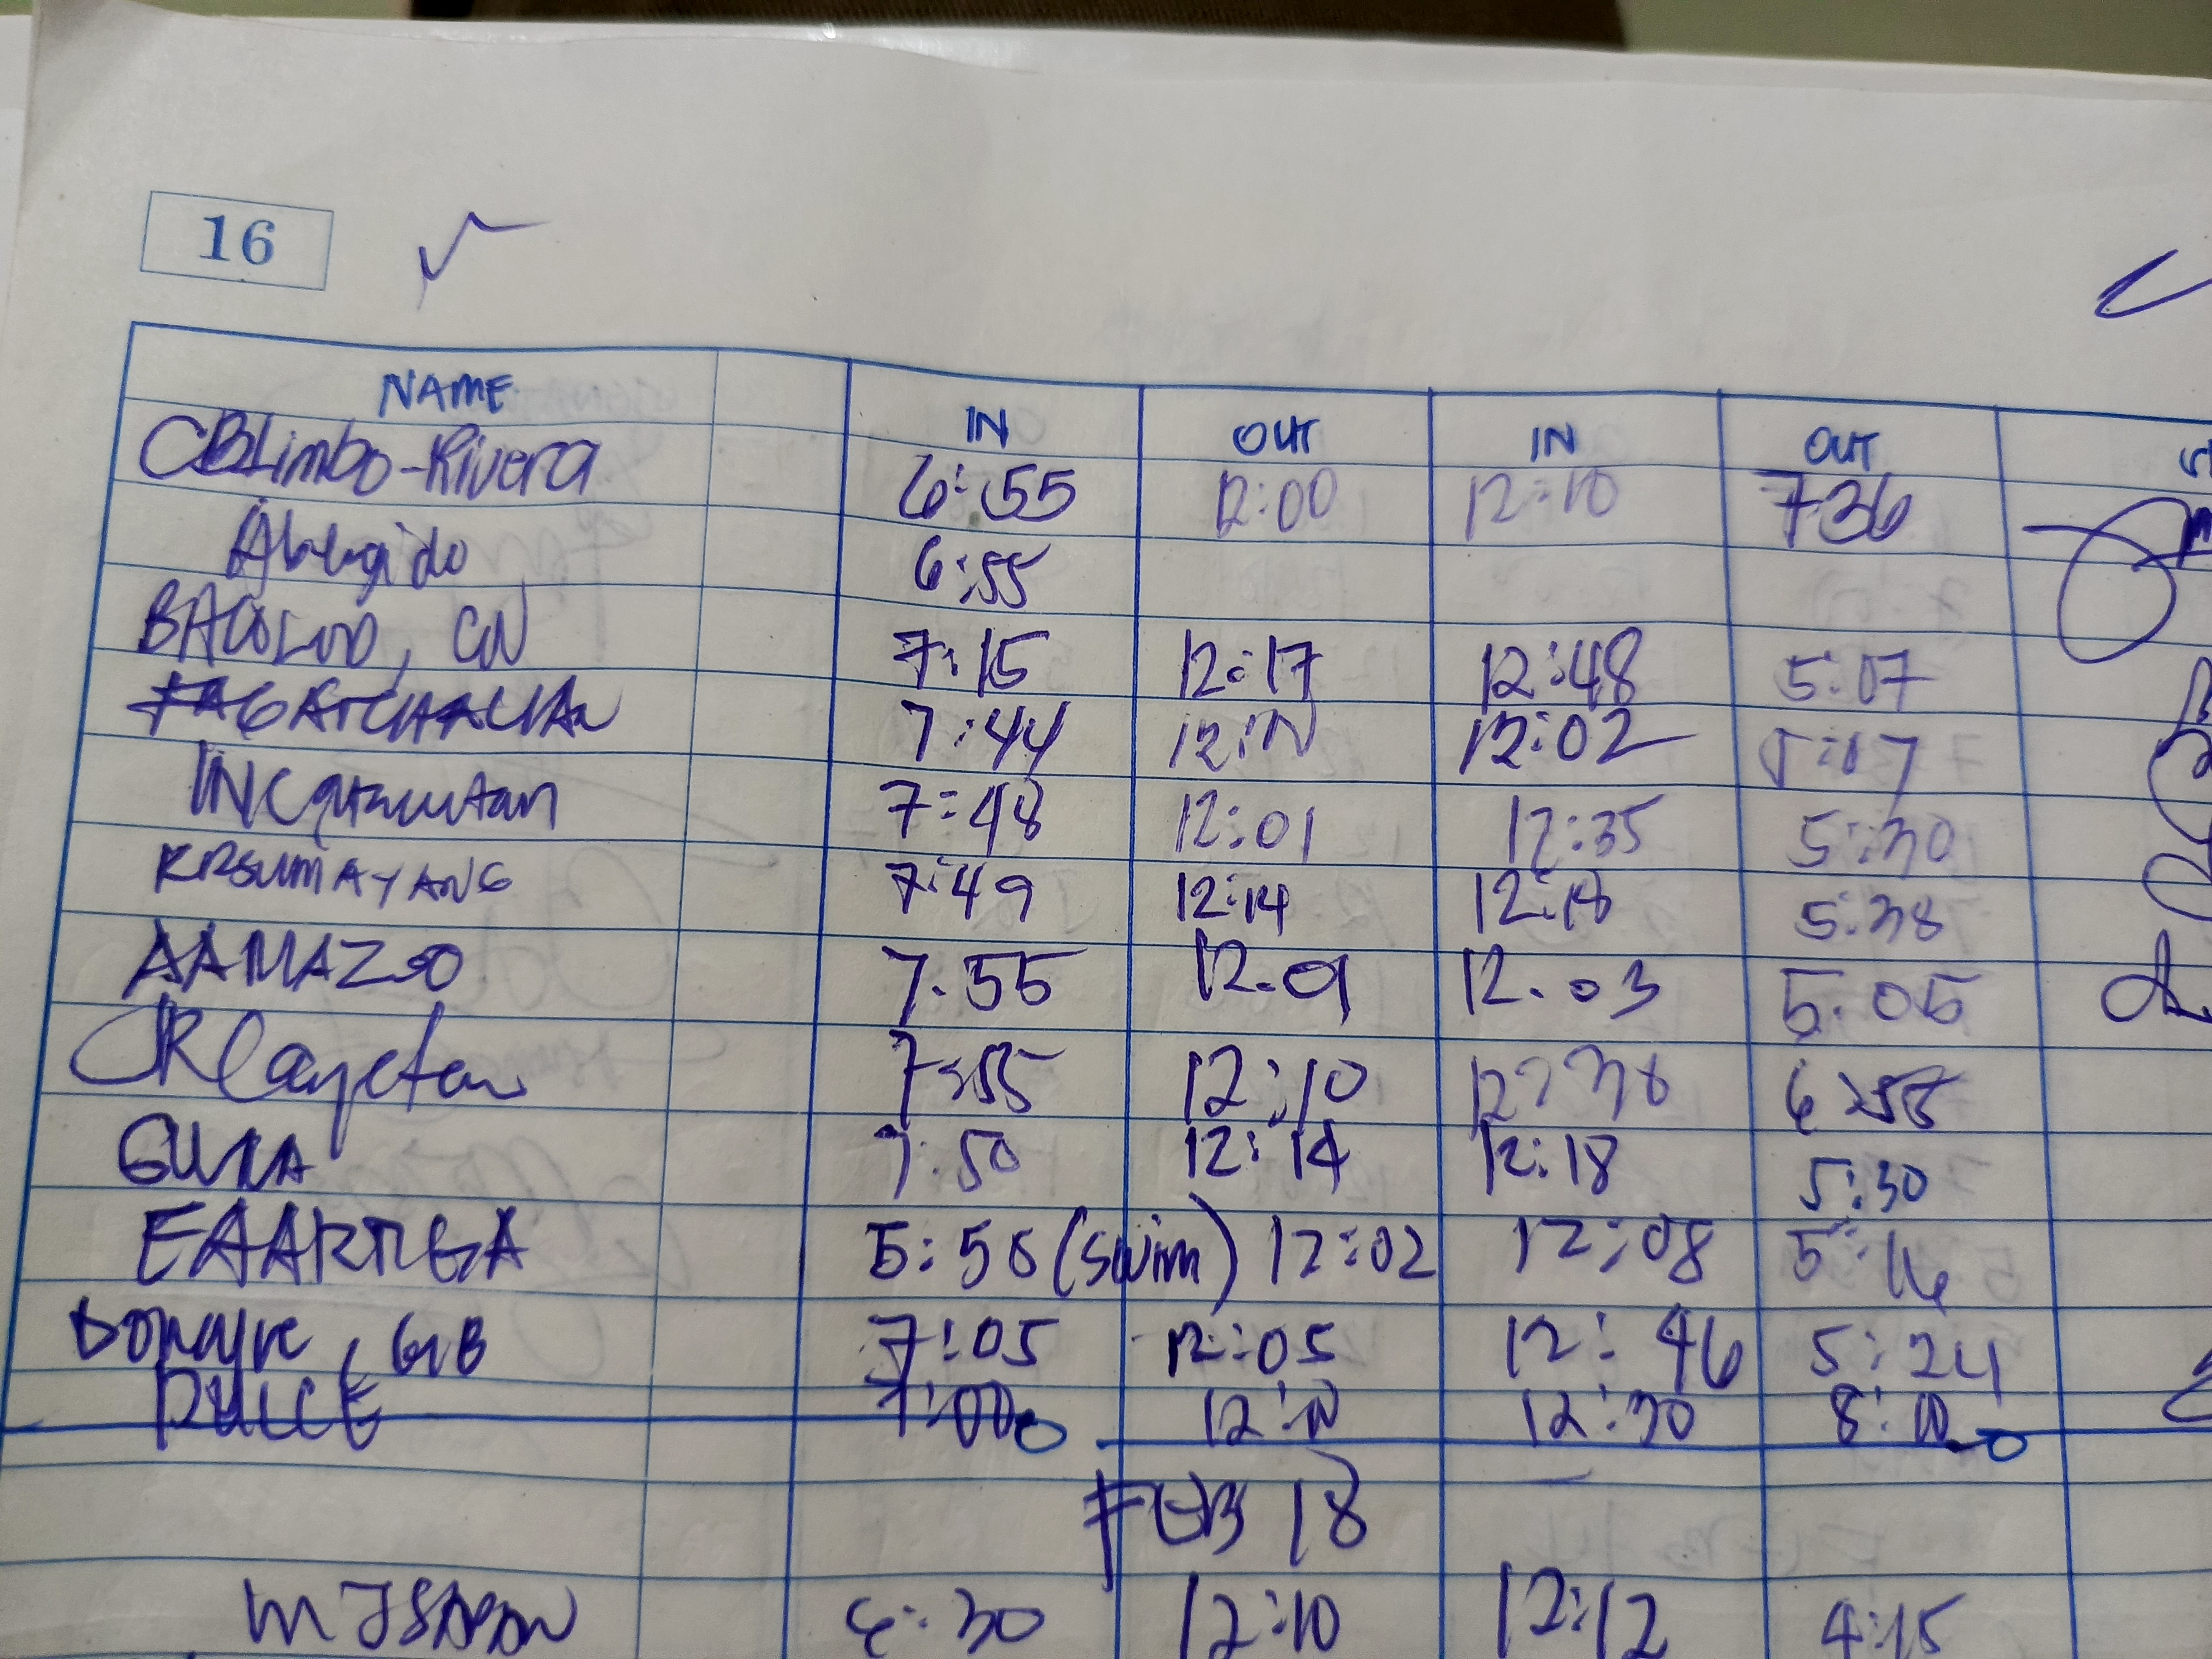 16
NAME IN OUT IN OUT
CBLimbo-Rivera 6:55 12:00 12:10 736
6:55
BACOLOD, CN 7:15 12:17 12:48 5:07
FAGATCHALIAN 7:44 12:N 12:02 5:07
7:48 12:01 12:35 5:30
KRSUMAYANG 7:49 12:14 12:18 5:38
AAMAZO 7.55 12.01 12.03 5.05
JRCayetan 7:55 12:10 12:38 6:58
7:50 12:14 12:18 5:30
EAARTIGA 5:58 (swim) 12:02 12:08 5:16
, GB 7:05 12:05 12:46 5:24
DULCE 7:00 12:N 12:30 8:10
FEB 18
6:30 12:10 12:12 4:15